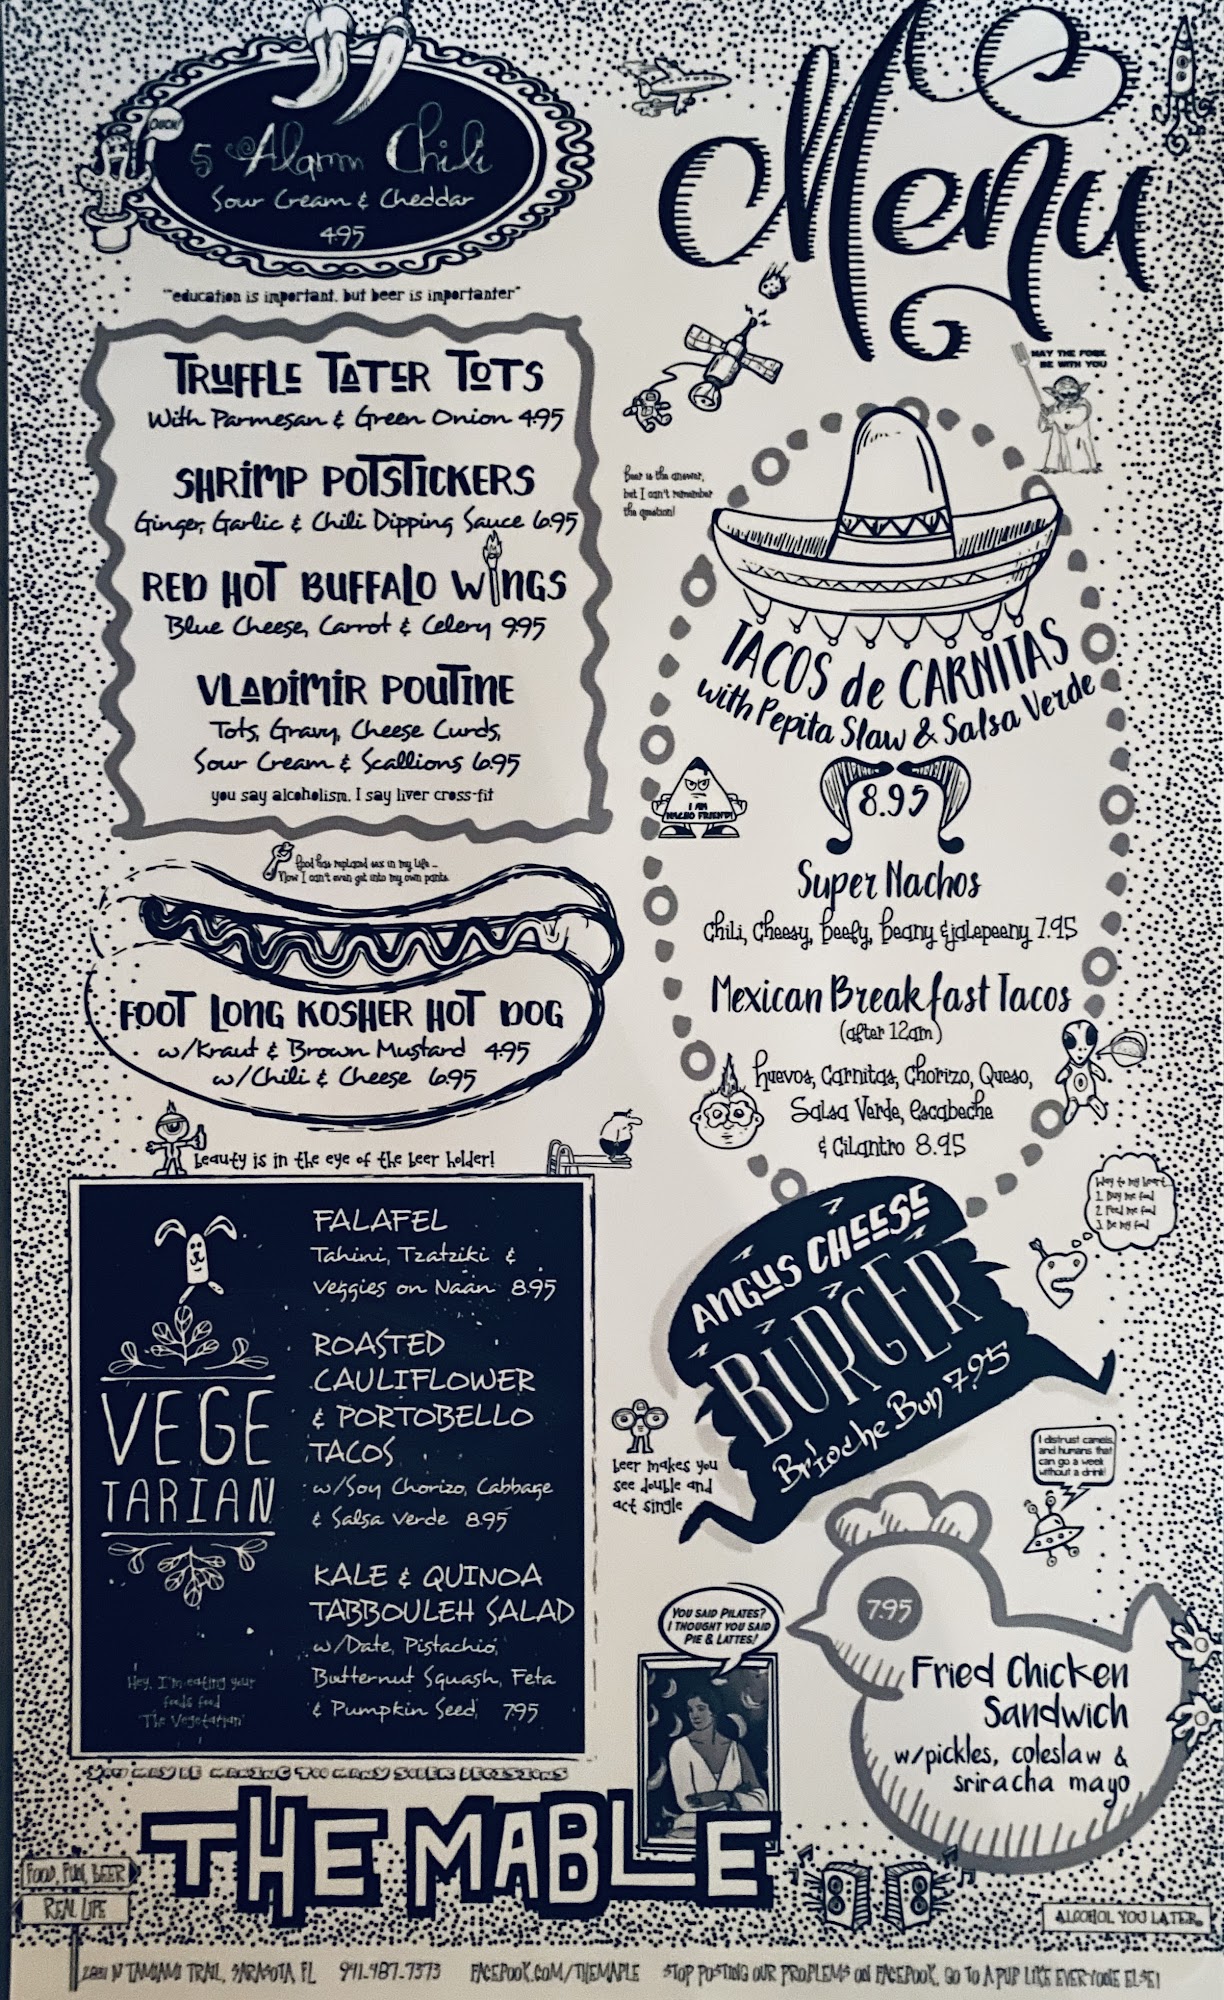 OUCH!
5 Alarm Chili
Sour Cream & Cheddar
4.95
"education is important, but beer is importanter"
TRUFFLE TATER TOTS
With Parmesan & Green Onion 4.95
SHRIMP POTSTICKERS
Ginger, Garlic & Chili Dipping Sauce 6.95
RED HOT BUFFALO WINGS
Blue Cheese, Carrot & Celery 9.95
VLADIMIR POUTINE
Tots, Gravy, Cheese Curds,
Sour Cream & Scallions 6.95
you say alcoholism, I say liver cross-fit
food has replaced sex in my life ...
Now I can't even get into my own pants.
FOOT LONG KOSHER HOT DOG
w/Kraut & Brown Mustard 4.95
w/Chili & Cheese 6.95
beauty is in the eye of the beer holder!
VEGE
TARIAN
Hey, I'm eating your
foods food
"The Vegetarian"
FALAFEL
Tahini, Tzatziki &
Veggies on Naan 8.95
ROASTED
CAULIFLOWER
& PORTOBELLO
TACOS
w/Soy Chorizo, Cabbage
& Salsa Verde 8.95
KALE & QUINOA
TABBOULEH SALAD
w/Date, Pistachio,
Butternut Squash, Feta
& Pumpkin Seed, 7.95
YOU MAY BE MAKING TOO MANY SOBER DECISIONS
Menu
MAY THE FORK
BE WITH YOU
Beer is the answer,
but I can't remember
the question!
TACOS de CARNITAS
with Pepita Slaw & Salsa Verde
8.95
I AM
NACHO FRIEND!
Super Nachos
Chili, Cheesy, Beefy, Beany & jalepeeny 7.95
Mexican Breakfast Tacos
(after 12am)
huevos, Carnitas, Chorizo, Queso,
Salsa Verde, escabeche
& Cilantro 8.95
Way to my heart...
1. Buy me food
2. Feed me food
3. Be my food
ANGUS CHEESE
BURGER
Brioche Bun 7.95
beer makes you
see double and
act single
I distrust camels,
and humans that
can go a week
without a drink!
YOU SAID PILATES?
I THOUGHT YOU SAID
PIE & LATTES!
7.95
Fried Chicken
Sandwich
w/pickles, coleslaw &
sriracha mayo
THE MABLE
FOOD, FUN, BEER
REAL LIFE
ALCOHOL YOU LATER.
N TAMIAMI TRAIL, SARASOTA, FL 941-487-7373 FACEBOOK.COM/THEMABLE STOP POSTING OUR PROBLEMS ON FACEBOOK, GO TO A PUB LIKE EVERYONE ELSE!